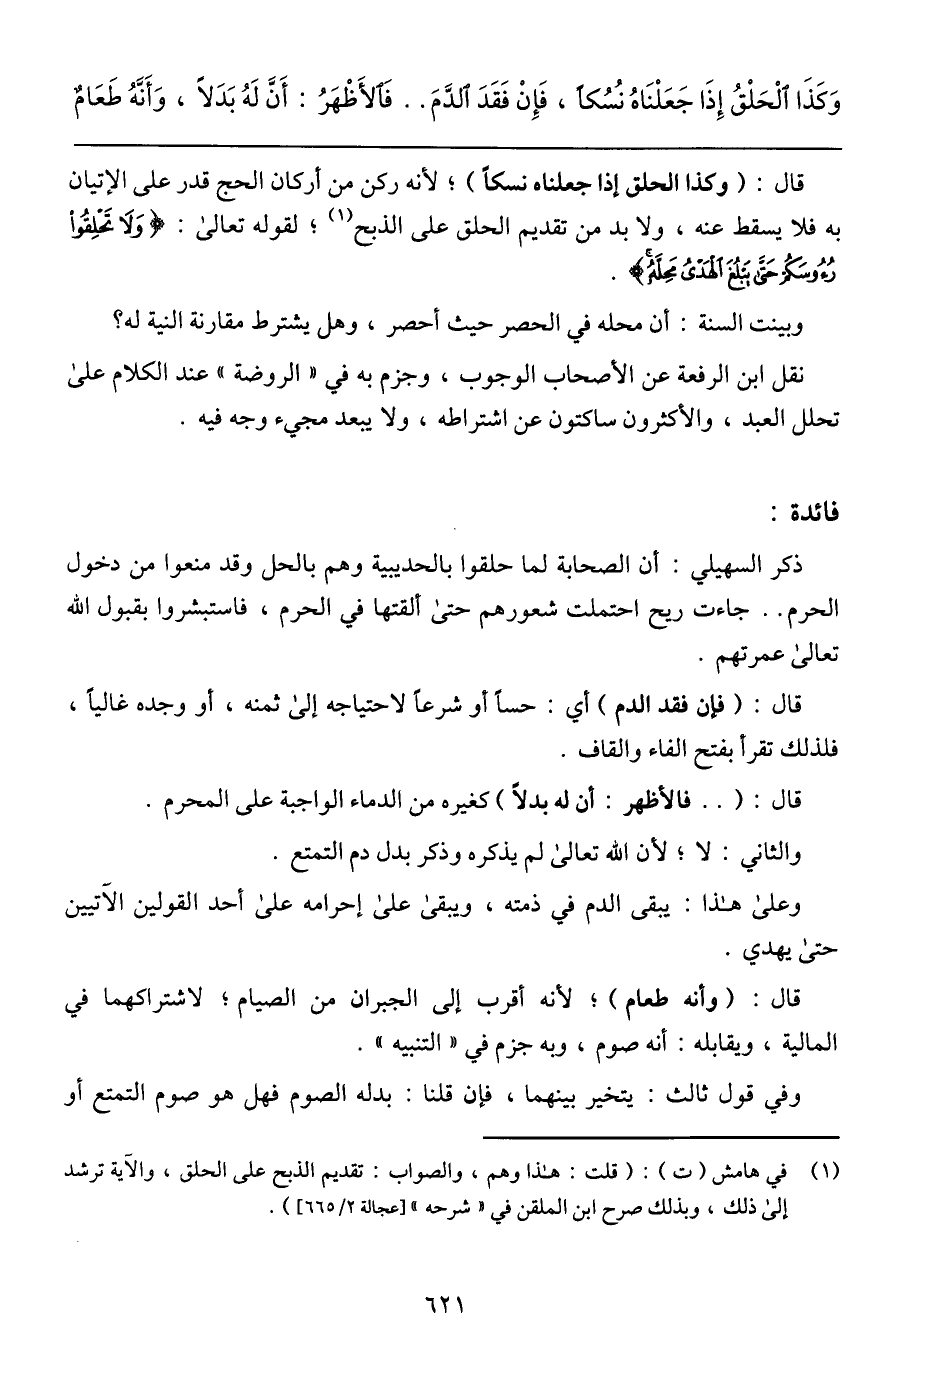 وَكَذَا ٱلْحَلْقُ إِذَا جَعَلْنَاهُ نُسُكاً ، فَإِنْ فَقَدَ ٱلدَّمَ.. فَٱلأَظْهَرُ : أَنَّ لَهُ بَدَلاً ، وَأَنَّهُ طَعَامٌ
قال : ( وكذا الحلق إذا جعلناه نسكاً ) ؛ لأنه ركن من أركان الحج قدر على الإتيان
به فلا يسقط عنه ، ولا بد من تقديم الحلق على الذبح(١) ؛ لقوله تعالىٰ : ﴿ وَلَا تَحْلِقُوا۟
رُءُوسَكُمْ حَتَّىٰ يَبْلُغَ الْهَدْىُ مَحِلَّهُۥ ﴾ .
وبينت السنة : أن محله في الحصر حيث أحصر ، وهل يشترط مقارنة النية له؟
نقل ابن الرفعة عن الأصحاب الوجوب ، وجزم به في « الروضة » عند الكلام علىٰ
تحلل العبد ، والأكثرون ساكتون عن اشتراطه ، ولا يبعد مجيء وجه فيه .
فائدة :
ذكر السهيلي : أن الصحابة لما حلقوا بالحديبية وهم بالحل وقد منعوا من دخول
الحرم.. جاءت ريح احتملت شعورهم حتىٰ ألقتها في الحرم ، فاستبشروا بقبول الله
تعالىٰ عمرتهم .
قال : ( فإن فقد الدم ) أي : حساً أو شرعاً لاحتياجه إلىٰ ثمنه ، أو وجده غالياً ،
فلذلك تقرأ بفتح الفاء والقاف .
قال : ( .. فالأظهر : أن له بدلاً ) كغيره من الدماء الواجبة على المحرم .
والثاني : لا ؛ لأن الله تعالىٰ لم يذكره وذكر بدل دم التمتع .
وعلىٰ هـٰذا : يبقى الدم في ذمته ، ويبقىٰ علىٰ إحرامه علىٰ أحد القولين الآتيين
حتىٰ يهدي .
قال : ( وأنه طعام ) ؛ لأنه أقرب إلى الجبران من الصيام ؛ لاشتراكهما في
المالية ، ويقابله : أنه صوم ، وبه جزم في « التنبيه » .
وفي قول ثالث : يتخير بينهما ، فإن قلنا : بدله الصوم فهل هو صوم التمتع أو
(١) في هامش ( ت ) : ( قلت : هـٰذا وهم ، والصواب : تقديم الذبح على الحلق ، والآية ترشد
إلىٰ ذلك ، وبذلك صرح ابن الملقن في « شرحه » [عجالة ٢/ ٦٦٥] ) .
٦٢١